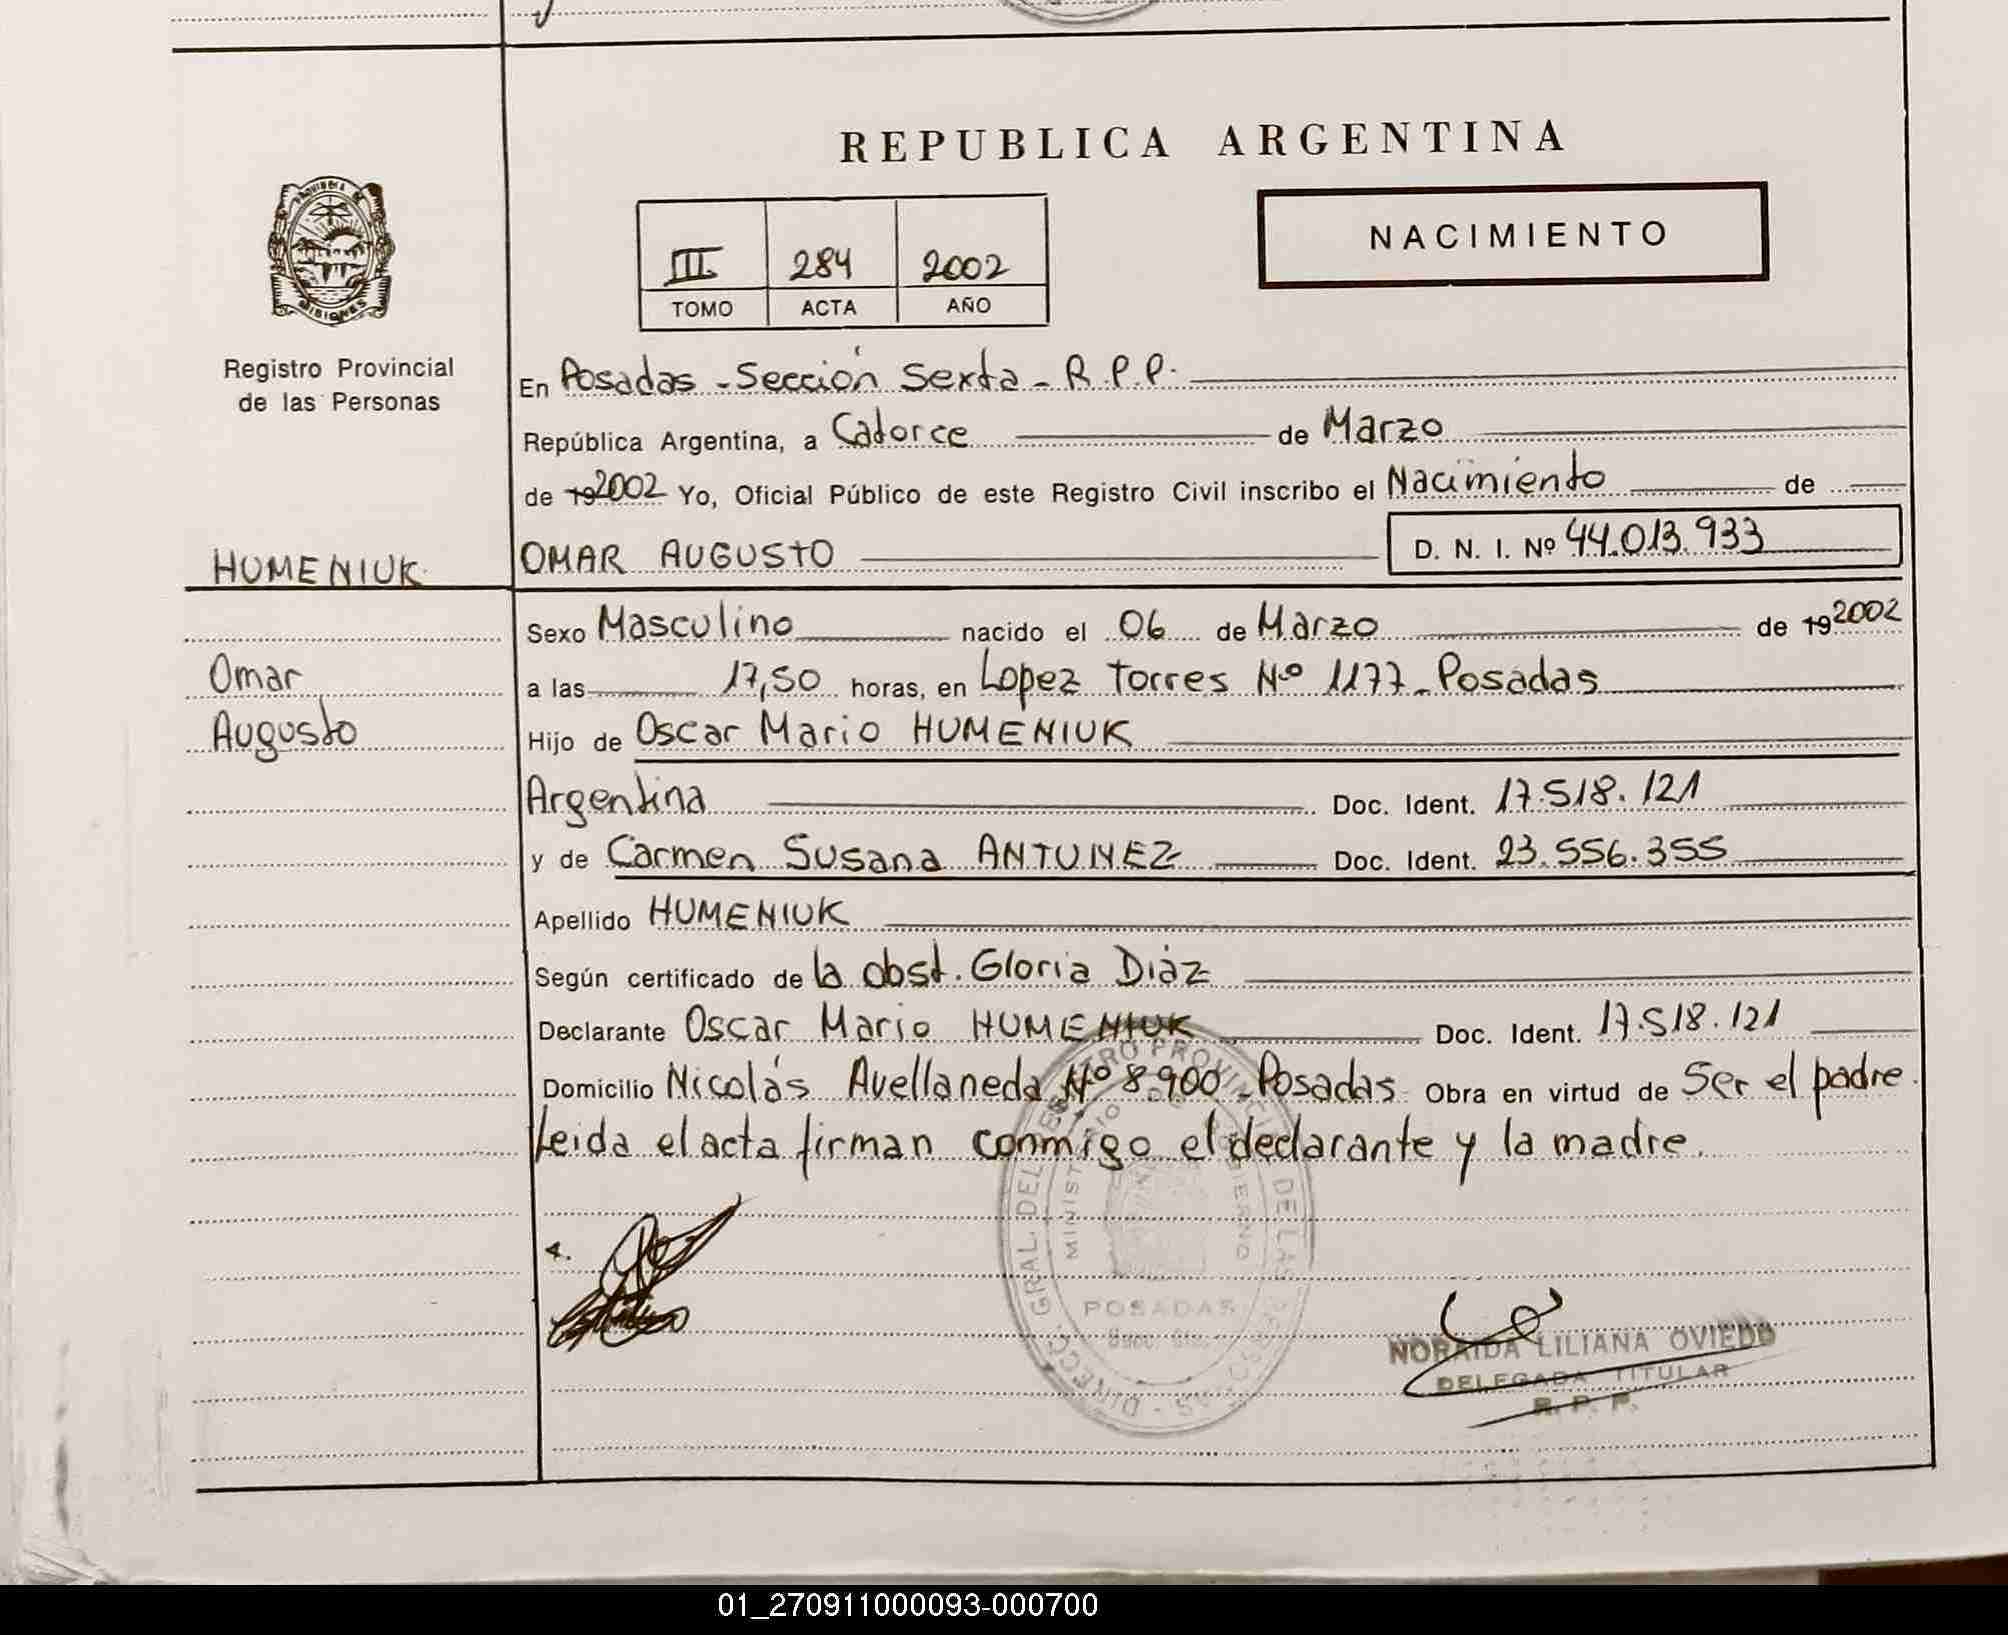 REPUBLICA ARGENTINA
NACIMIENTO
III 284 2002
TOMO ACTA AÑO
PROVINCIA DE
MISIONES
Registro Provincial
de las Personas
En Posadas - Sección Sexta - R.P.P.
República Argentina, a Catorce de Marzo
de 192002 Yo, Oficial Público de este Registro Civil inscribo el Nacimiento de
HUMENIUK OMAR AUGUSTO D. N. I. Nº 44.013.933
Sexo Masculino nacido el 06 de Marzo de 192002
Omar a las 17,50 horas, en Lopez Torres Nº 1177 - Posadas
Augusto Hijo de Oscar Mario HUMENIUK
Argentina Doc. Ident. 17.518.121
y de Carmen Susana ANTUNEZ Doc. Ident. 23.556.355
Apellido HUMENIUK
Según certificado de la obst. Gloria Diáz
Declarante Oscar Mario HUMENIUK Doc. Ident. 17.518.121
Domicilio Nicolás Avellaneda Nº 8.900 - Posadas Obra en virtud de Ser el padre.
Leida el acta firman conmigo el declarante y la madre.
DIRECC. GRAL. DEL REGISTRO PROVINCIAL DE LAS PERSONAS
MINISTERIO DE GOBIERNO
POSADAS
NORAIDA LILIANA OVIEDO
DELEGADA TITULAR
R. P. P.
01_270911000093-000700